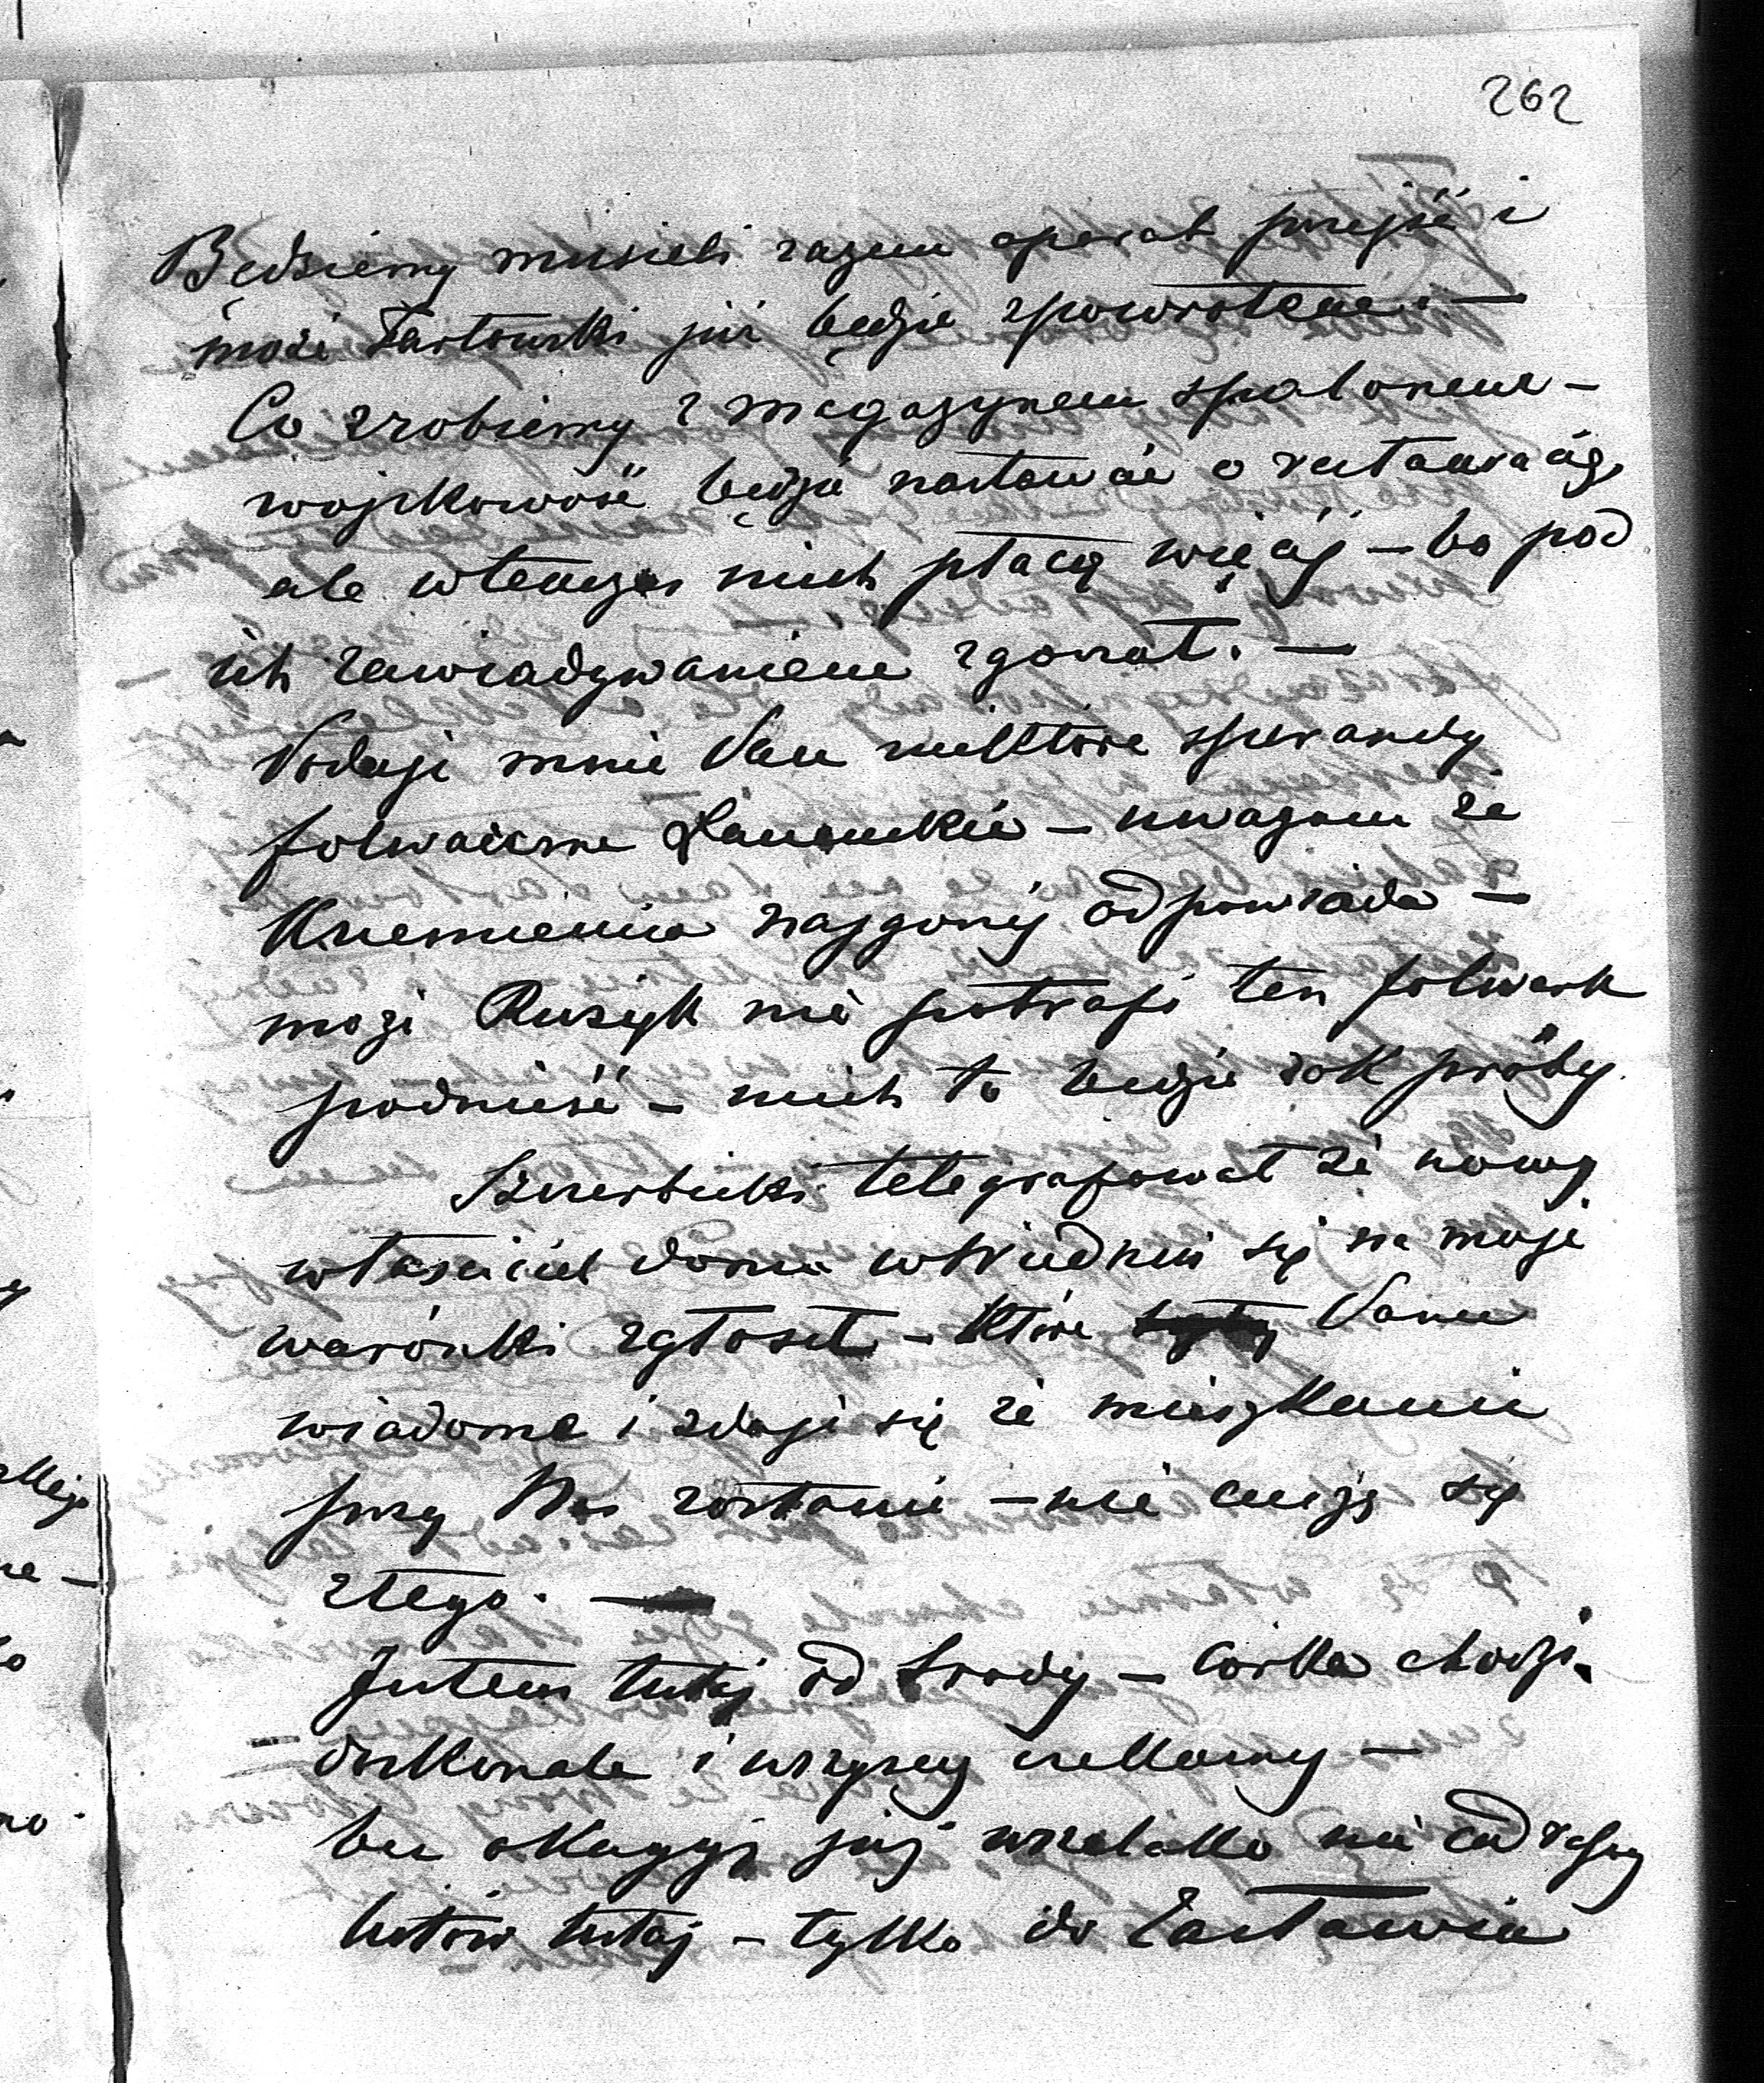 262
Będziemy musieli razem operat przejść i
może Tartowski już będzie spowrotem. —
Co zrobiemy z magazynem spalonem —
wojskowość będzie nastawać o restauracią,
ale wtenczas niech płacą więcéj — bo pod
ich zawiadywaniem zgorzał. —
Podaje mnie Pan niektóre
folwarczne Łańcuckie — uważam że
Krzemienica najgorzéj odpowiada —
może Ruszyk nie potrafi ten folwark
podnieść — niech to będzie rok próby.
telegrafował że nowy
właściciel domu w Wiedniu się na moje
warónki zgłosił — które Panu
wiadome i zdaje się że mieszkanie
przy Nas zostanie — nie cieszę się
ztego. —
Jutem tutaj od środy — córka chodzi
doskonale i wszyscy czekamy —
bez okazyj jéj wszelako nie adresuj
listów tutaj — tylko do Zastawia